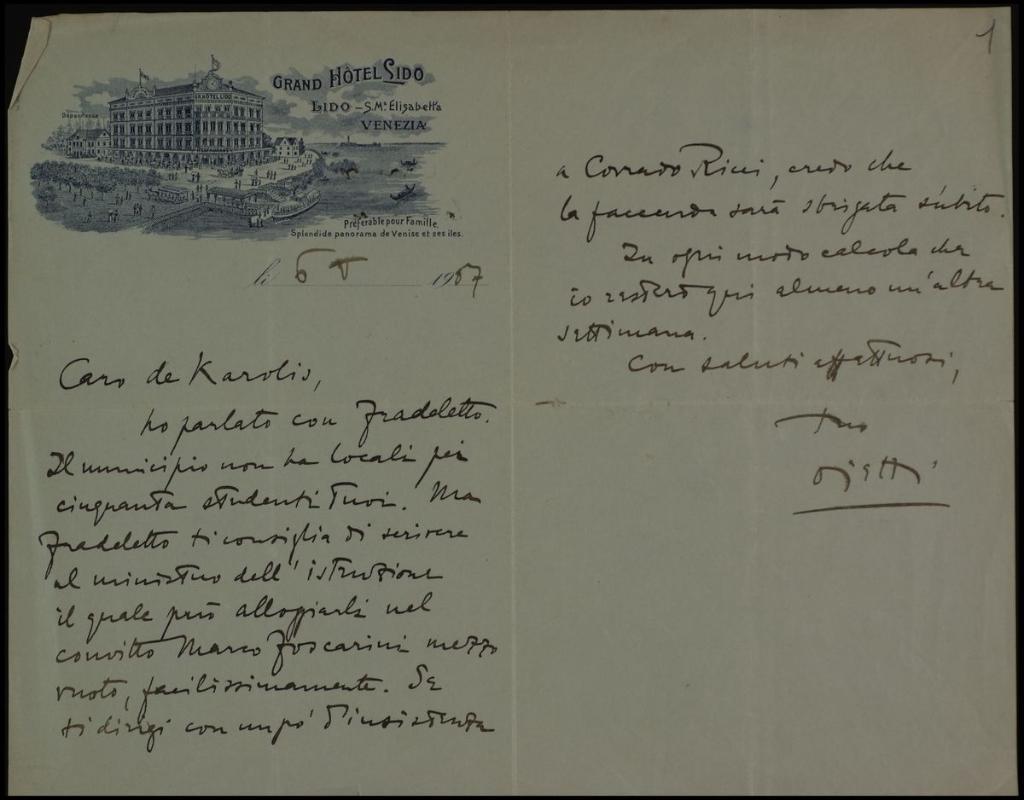 1
GRAND HÔTEL LIDO
LIDO – S. Mª. Élisabetta
VENEZIA
Dépendance
GD. HÔTEL LIDO
Préférable pour Famille.
Splendide panorama de Venise et ses îles.
li 6 V 1907
Caro de Karolis,
ho parlato con Fradeletto.
Il municipio non ha locali per
cinquanta studenti tuoi. Ma
Fradeletto ti consiglia di scrivere
al ministro dell'istruzione
il quale può alloggiarli nel
convitto Marco Foscarini mezzo
vuoto, facilissimamente. Se
ti dirigi con un pò d'insistenza
a Corrado Ricci, credo che
la faccenda sarà sbrigata sùbito.
In ogni modo calcola che
io resterò qui almeno un'altra
settimana.
Con saluti affettuosi,
tuo
Ojetti